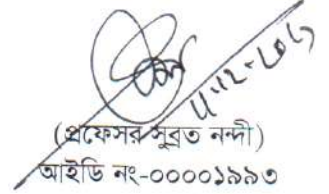 (প্রফেসর সুব্রত নন্দী)
আইডি নং-০০০০১৯৯৩